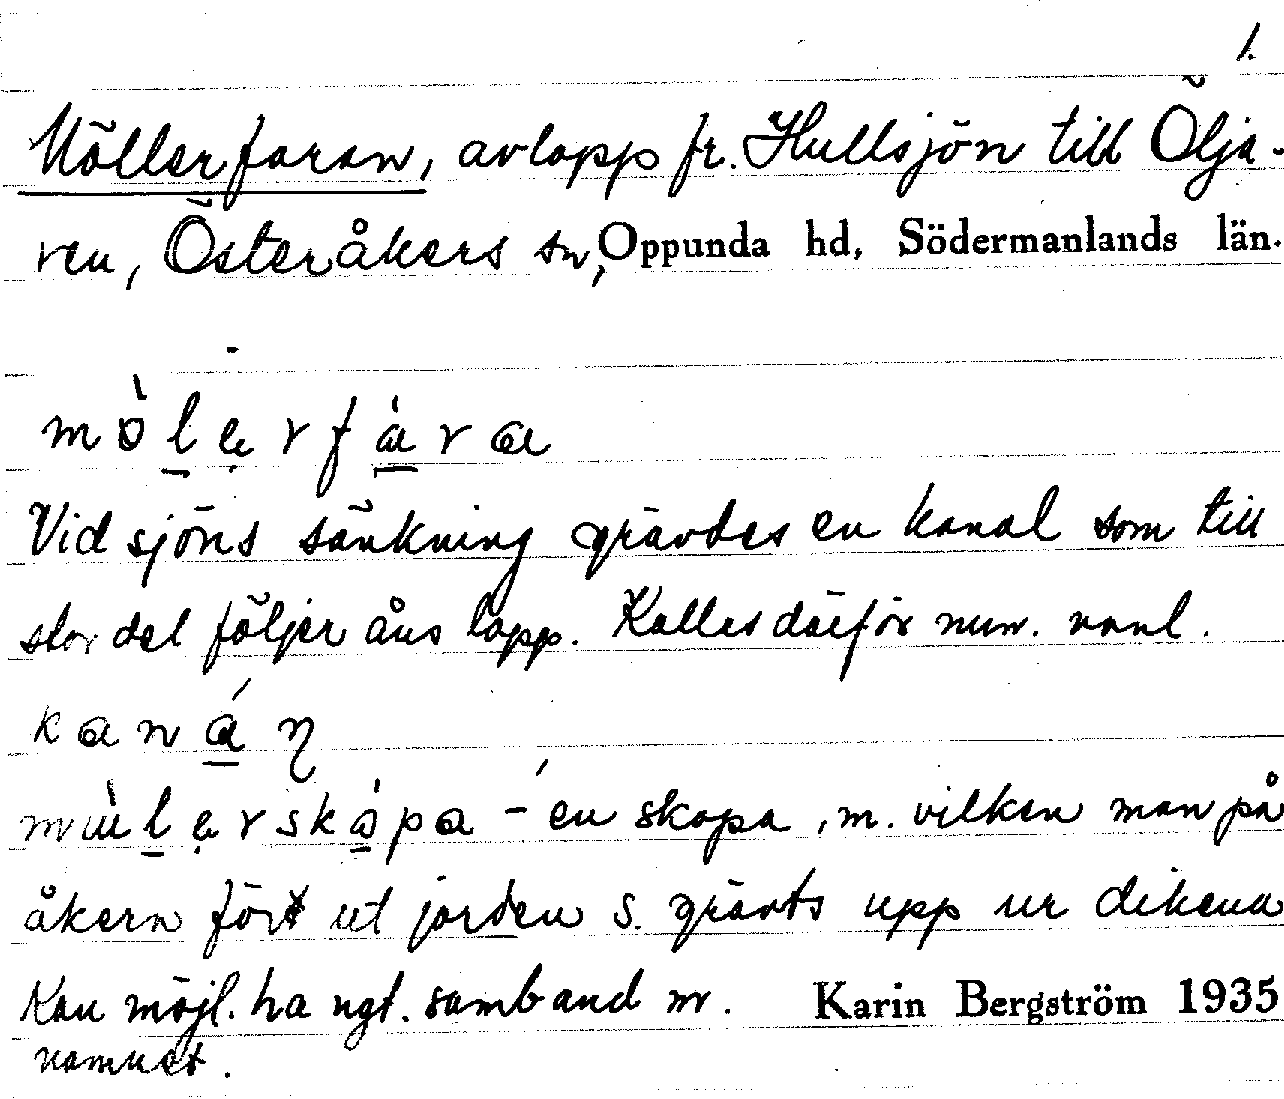 1.
Möllerfaran, avlopp fr. Hullsjön till Ölja-
ren, Österåkers sn, Oppunda hd, Södermanlands län.
m ò l e r f à r a
Vid sjöns sänkning grävdes en kanal som till
stor del följer åns lopp. Kallas därför num. vanl.
k a n á
m l e r s k p a - en skopa, m. vilken man på
åkern fört ut jorden s. grävts upp ur dikena
Kan möjl. ha ngt. samband m. Karin Bergström 1935
namnet.